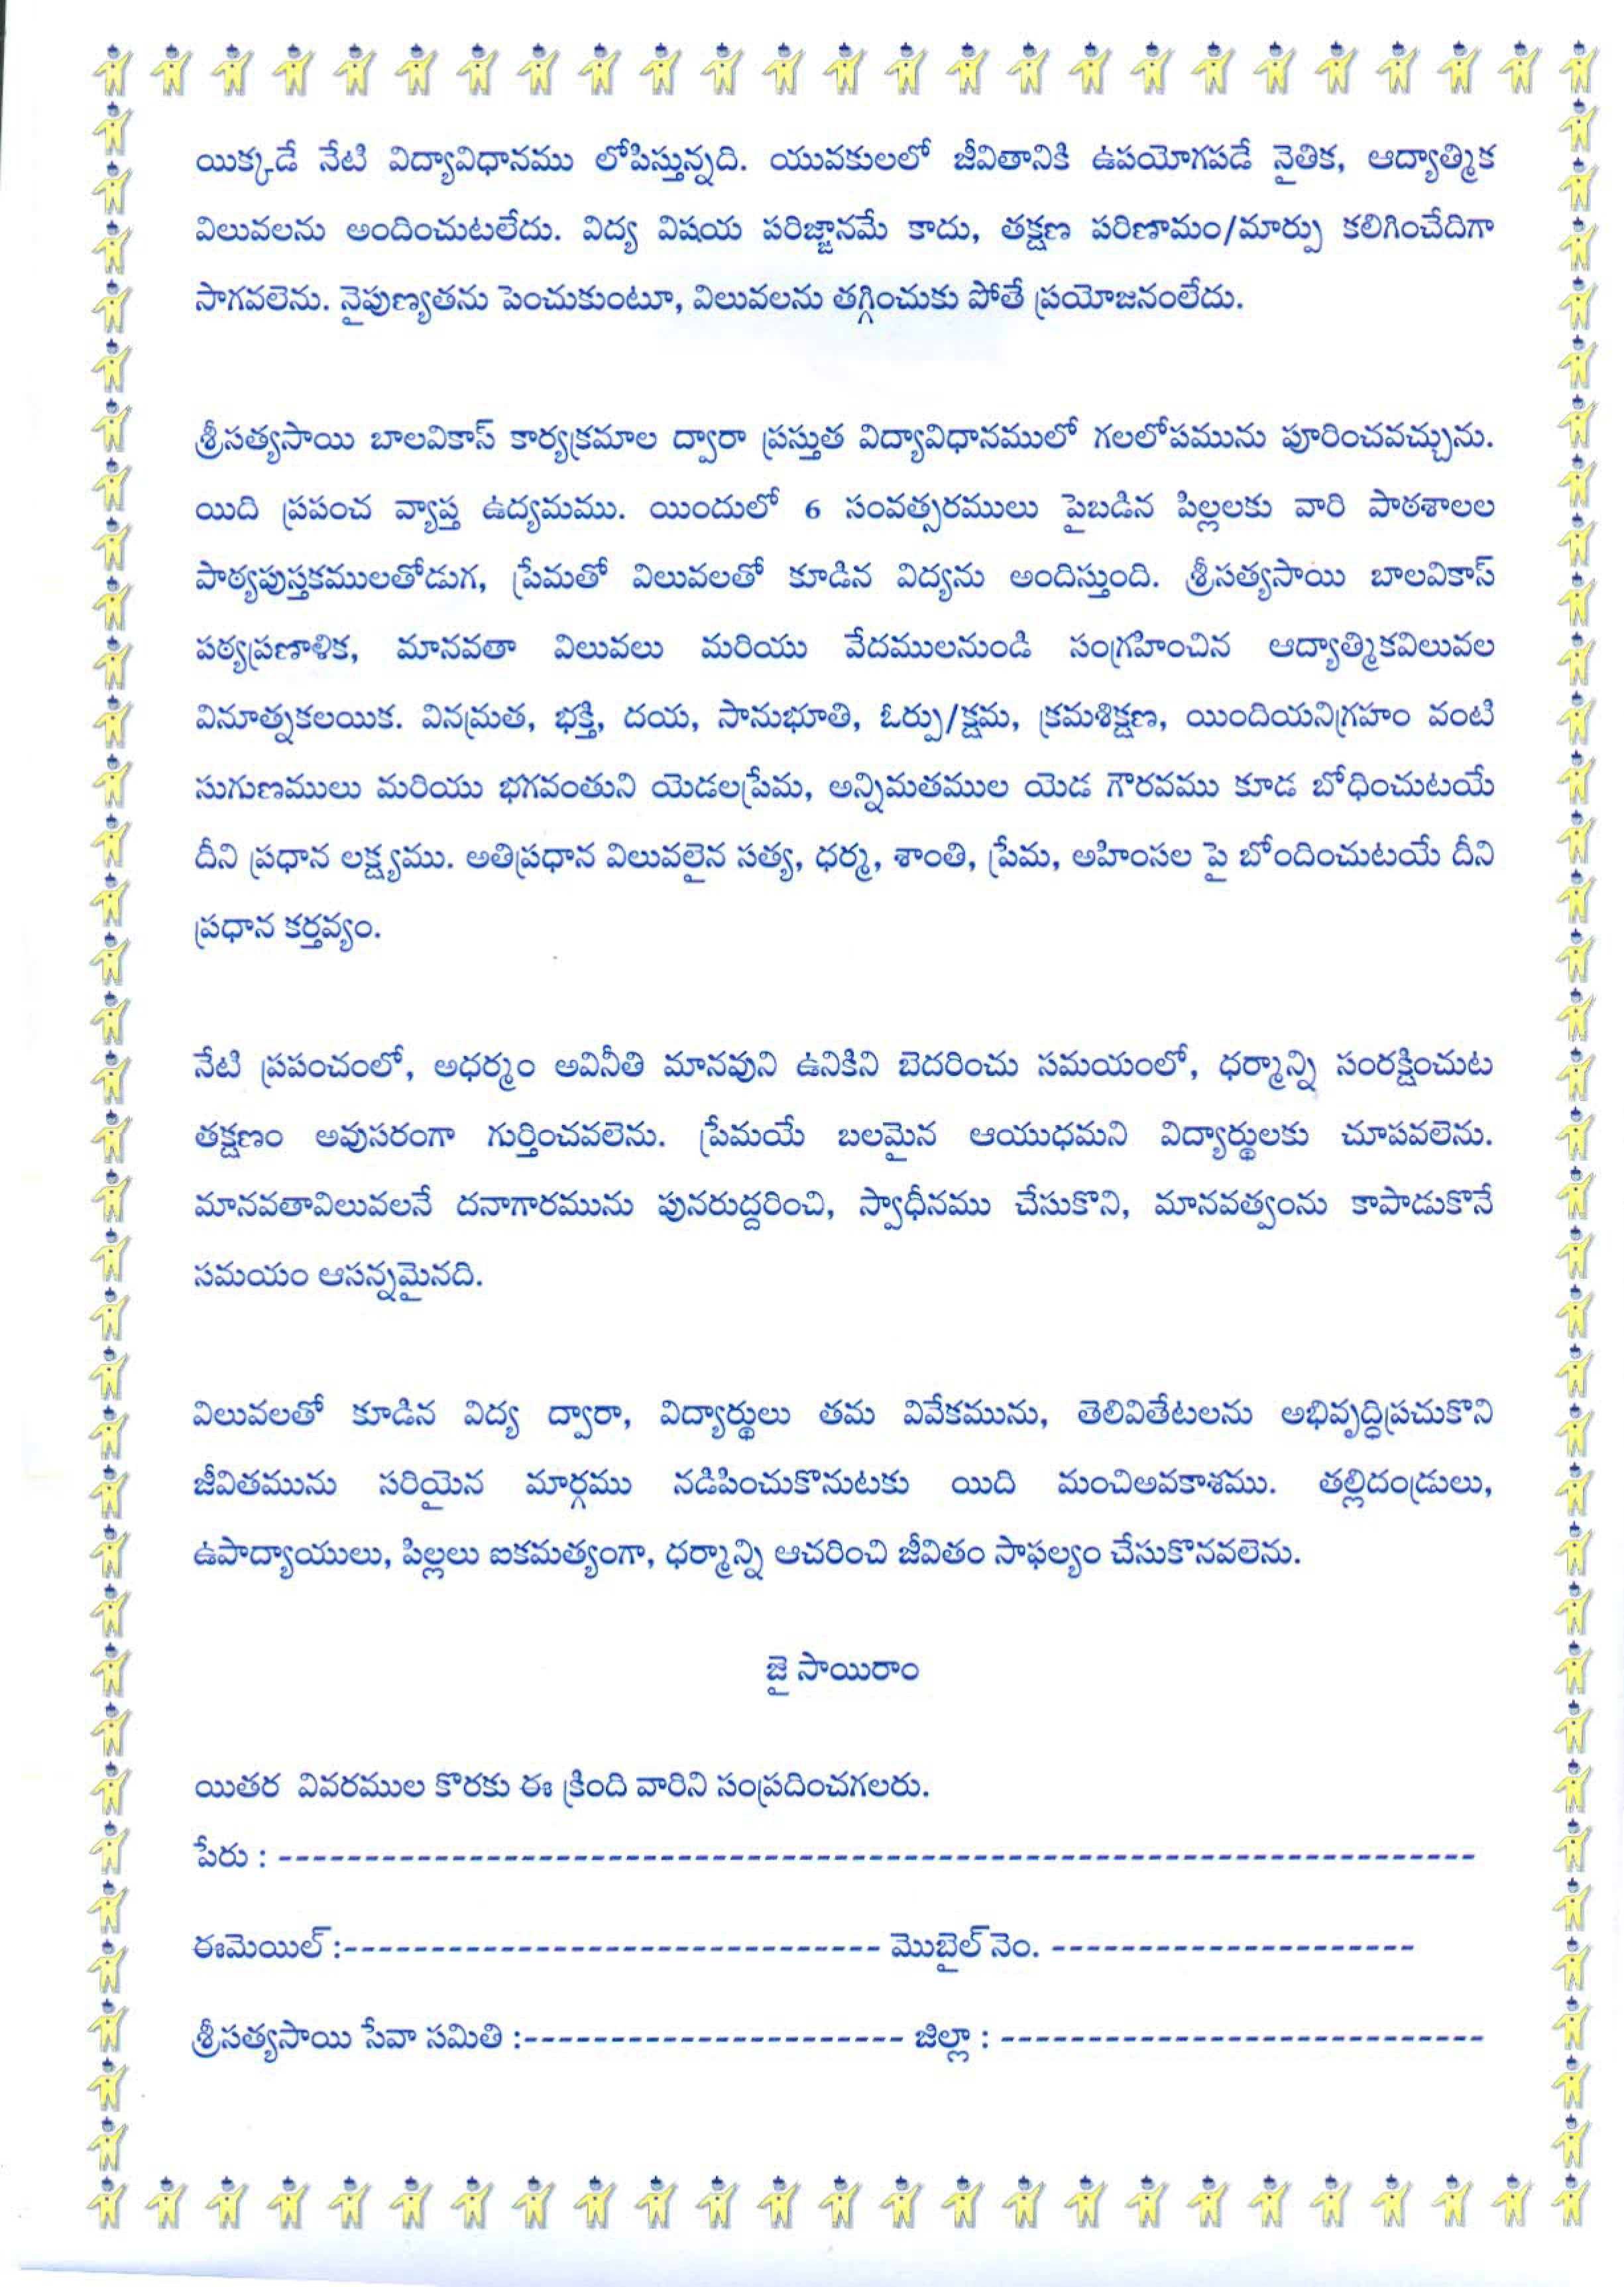 యిక్కడే నేటి విద్యావిధానము లోపిస్తున్నది. యువకులలో జీవితానికి ఉపయోగపడే నైతిక, ఆద్యాత్మిక
విలువలను అందించుటలేదు. విద్య విషయ పరిజ్ఞానమే కాదు, తక్షణ పరిణామం/మార్పు కలిగించేదిగా
సాగవలెను. నైపుణ్యతను పెంచుకుంటూ, విలువలను తగ్గించుకు పోతే ప్రయోజనంలేదు.
శ్రీసత్యసాయి బాలవికాస్ కార్యక్రమాల ద్వారా ప్రస్తుత విద్యావిధానములో గలలోపమును పూరించవచ్చును.
యిది ప్రపంచ వ్యాప్త ఉద్యమము. యిందులో 6 సంవత్సరములు పైబడిన పిల్లలకు వారి పాఠశాలల
పాఠ్యపుస్తకములతోడుగ, ప్రేమతో విలువలతో కూడిన విద్యను అందిస్తుంది. శ్రీసత్యసాయి బాలవికాస్
పఠ్యప్రణాళిక, మానవతా విలువలు మరియు వేదములనుండి సంగ్రహించిన ఆద్యాత్మికవిలువల
వినూత్నకలయిక. వినమ్రత, భక్తి, దయ, సానుభూతి, ఓర్పు/క్షమ, క్రమశిక్షణ, యిందియనిగ్రహం వంటి
సుగుణములు మరియు భగవంతుని యెడలప్రేమ, అన్నిమతముల యెడ గౌరవము కూడ బోధించుటయే
దీని ప్రధాన లక్ష్యము. అతిప్రధాన విలువలైన సత్య, ధర్మ, శాంతి, ప్రేమ, అహింసల పై బోందించుటయే దీని
ప్రధాన కర్తవ్యం.
నేటి ప్రపంచంలో, అధర్మం అవినీతి మానవుని ఉనికిని బెదరించు సమయంలో, ధర్మాన్ని సంరక్షించుట
తక్షణం అవుసరంగా గుర్తించవలెను. ప్రేమయే బలమైన ఆయుధమని విద్యార్థులకు చూపవలెను.
మానవతావిలువలనే దనాగారమును పునరుద్దరించి, స్వాధీనము చేసుకొని, మానవత్వంను కాపాడుకొనే
సమయం ఆసన్నమైనది.
విలువలతో కూడిన విద్య ద్వారా, విద్యార్థులు తమ వివేకమును, తెలివితేటలను అభివృద్ధిప్రచుకొని
జీవితమును సరియైన మార్గము నడిపించుకొనుటకు యిది మంచిఅవకాశము. తల్లిదండ్రులు,
ఉపాద్యాయులు, పిల్లలు ఐకమత్యంగా, ధర్మాన్ని ఆచరించి జీవితం సాఫల్యం చేసుకొనవలెను.
జై సాయిరాం
యితర వివరముల కొరకు ఈ క్రింది వారిని సంప్రదించగలరు.
పేరు : ----------------------------------------------------------------------
ఈమెయిల్ :-------------------------------- మొబైల్ నెం. ----------------------
శ్రీసత్యసాయి సేవా సమితి :----------------------- జిల్లా : -----------------------------